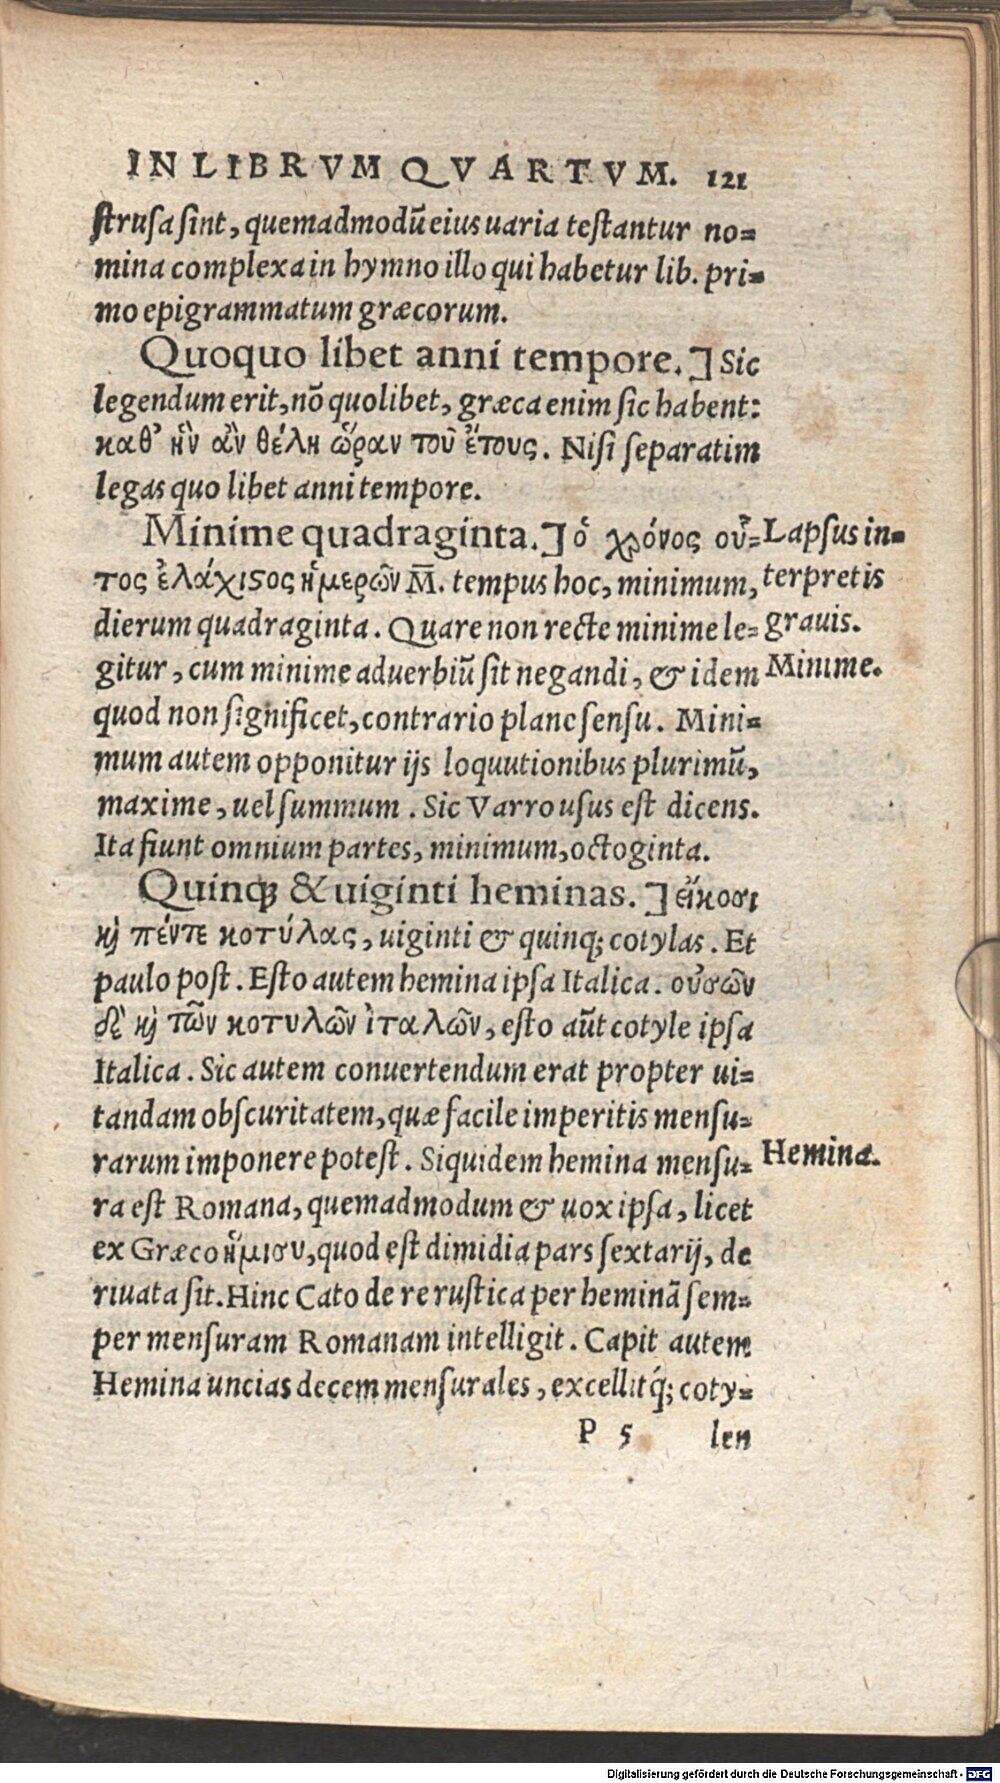 IN LIBRVM QVARTVM. 121
ſtruſa ſint, quemadmodũ eius uaria teſtantur no-
mina complexa in hymno illo qui habetur lib. pri-
mo epigrammatum græcorum.
Quoquo libet anni tempore.] Sic
legendum erit, nõ quolibet, græca enim ſic habent:
καθ' ἣν ἂν θέλῃ ὥραν τοῦ ἔτους. Niſi ſeparatim
legas quo libet anni tempore.
Minime quadraginta.] ὁ χρόνος οὗ-
τος ἐλάχιϛος ἡμερῶν Μ̅. tempus hoc, minimum,
dierum quadraginta. Quare non recte minime le-
gitur, cum minime aduerbiũ ſit negandi, & idem
quod non ſignificet, contrario plane ſenſu. Mini-
mum autem opponitur ijs loquutionibus plurimũ,
maxime, uel ſummum. Sic Varro uſus eſt dicens.
Ita fiunt omnium partes, minimum, octoginta.
Quinqꝫ & uiginti heminas.] εἴκοσι
ϗ πέντε κοτύλας, uiginti & quinqꝫ cotylas. Et
paulo poſt. Eſto autem hemina ipſa Italica. οὐσῶν
δὲ ϗ τῶν κοτυλῶν ἰταλῶν, eſto aũt cotyle ipſa
Italica. Sic autem conuertendum erat propter ui-
tandam obſcuritatem, quæ facile imperitis menſu-
rarum imponere poteſt. Siquidem hemina menſu-
ra eſt Romana, quemadmodum & uox ipſa, licet
ex Græco ἥμισυ, quod eſt dimidia pars ſextarij, de
riuata ſit. Hinc Cato de re ruſtica per heminã ſem-
per menſuram Romanam intelligit. Capit autem
Hemina uncias decem menſurales, excellitq́ꝫ coty-
P 5 len
Lapſus in-
terpretis
grauis.
Minime.
Hemina.
Digitalisierung gefördert durch die Deutsche Forschungsgemeinschaft - DFG